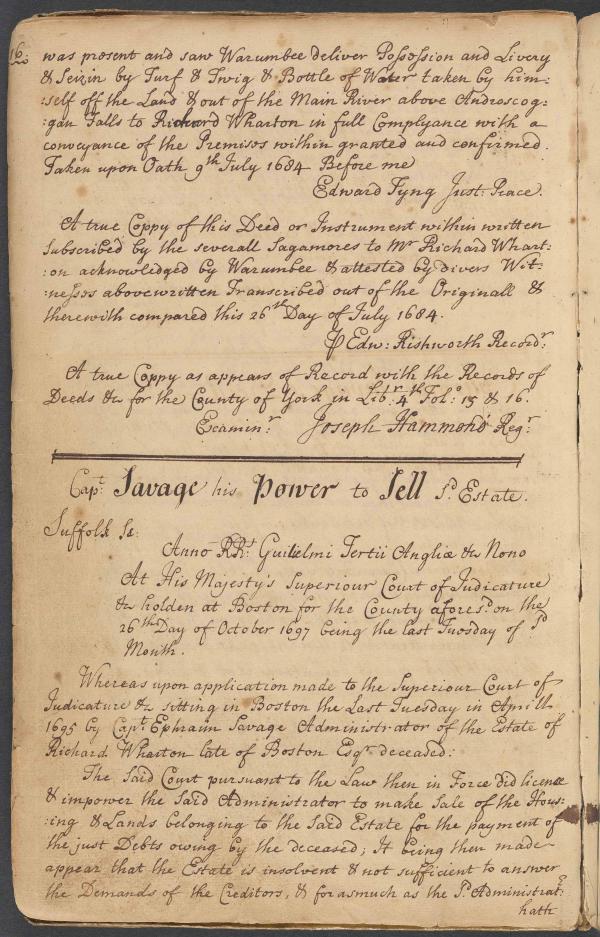 16:
was present and saw Warumbee deliver Possession and Livery
& Seizin by Turf & Twig & Bottle of Water taken by him:
:self off the Land & out of the Main River above Androscog:
:gan Falls to Richard Wharton in full Complyance with a
conveyance of the Premises within granted and confirmed.
Taken upon Oath 9th July 1684 Before me
Edward Tyng Just: Peace.
A true Coppy of this Deed or Instrument within written
Subscribed by the severall Sagamores to Mr Richard Whart:
:on acknowledged by Warumbee & attested by divers Wit:
:nesses abovewritten Transcribed out of the Originall &
therewith compared this 26th Day of July 1684.
Edw: Rishworth Recordr:
A true Coppy as appears of Record with the Records of
Deeds &c for the County of York in Libr. 4th Folo: 15 & 16.
Examinr: Joseph Hammond Regr:
Capt Savage his Power to Sell sd Estate.
Suffolk Ss:
Anno RRs Guilielmi Tertii Angliæ &c Nono
At His Majesty's Superiour Court of Judicature
&c holden at Boston for the County aforesd on the
26th Day of October 1697 being the last Tuesday of sd
Month.
Whereas upon application made to the Superiour Court of
Judicature &c sitting in Boston the Last Tuesday in Aprill
1695 by Capt Ephraim Savage Administrator of the Estate of
Richard Wharton late of Boston Esqr deceased:
The Said Court pursuant to the Law then in Force did licence
& impower the Said Administrator to make Sale of the Hous:
:ing & Lands belonging to the Said Estate for the payment of
the just Debts owing by the deceased; It being then made
appear that the Estate is insolvent & not sufficient to answer
the Demands of the Creditors, & forasmuch as the sd Administratr:
hath